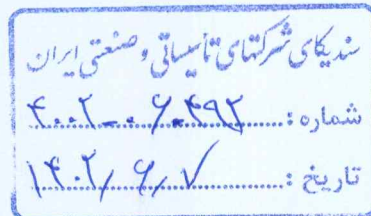 سندیکای شرکتهای تاسیساتی و صنعتی ایران
شماره : ۴۰۲-۰۶-۴۹۲
تاریخ : ۱۴۰۲/۶/۷